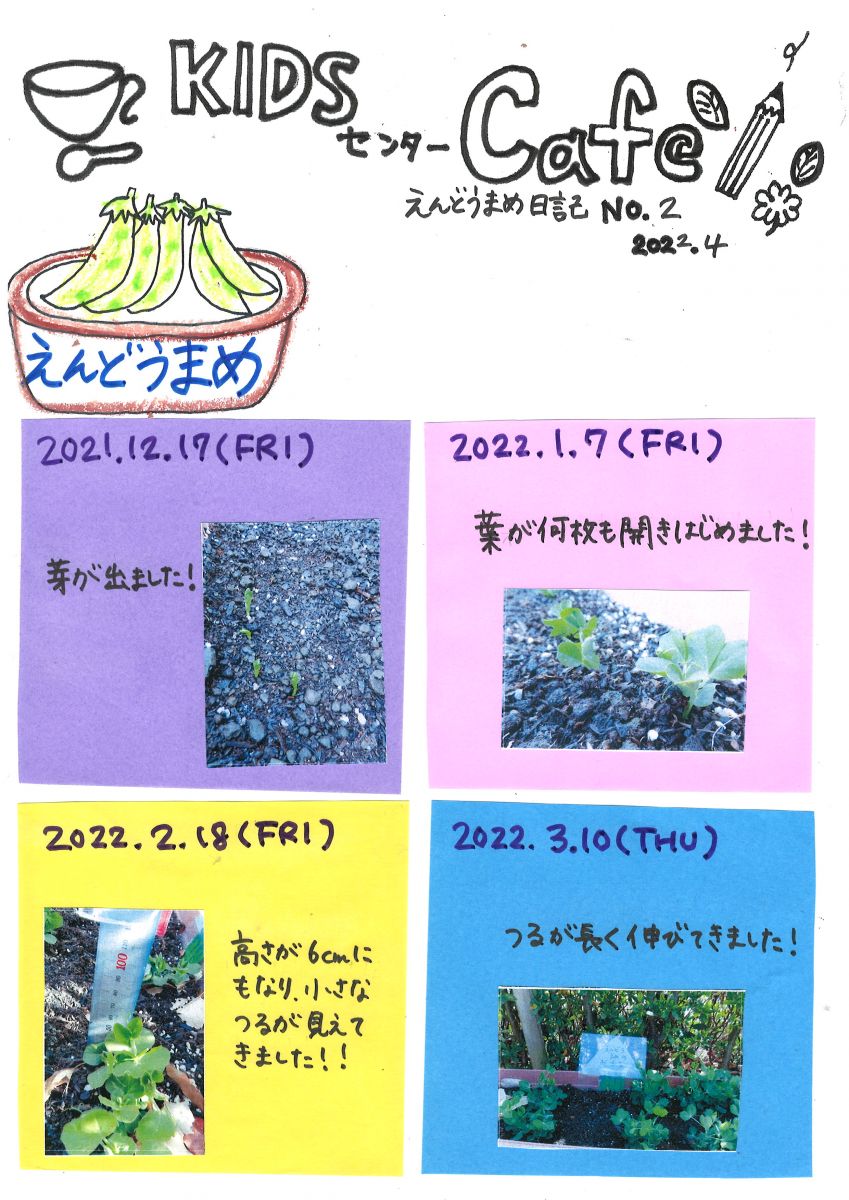 KIDS
センター Cafe
えんどうまめ日記 NO.2
2022.4
えんどうまめ
2021.12.17(FRI)
芽が出ました!
2022.1.7(FRI)
葉が何枚も開きはじめました!
2022.2.18(FRI)
高さが6cmに
もなり、小さな
つるが見えて
きました!!
100
2022.3.10(THU)
つるが長く伸びてきました!